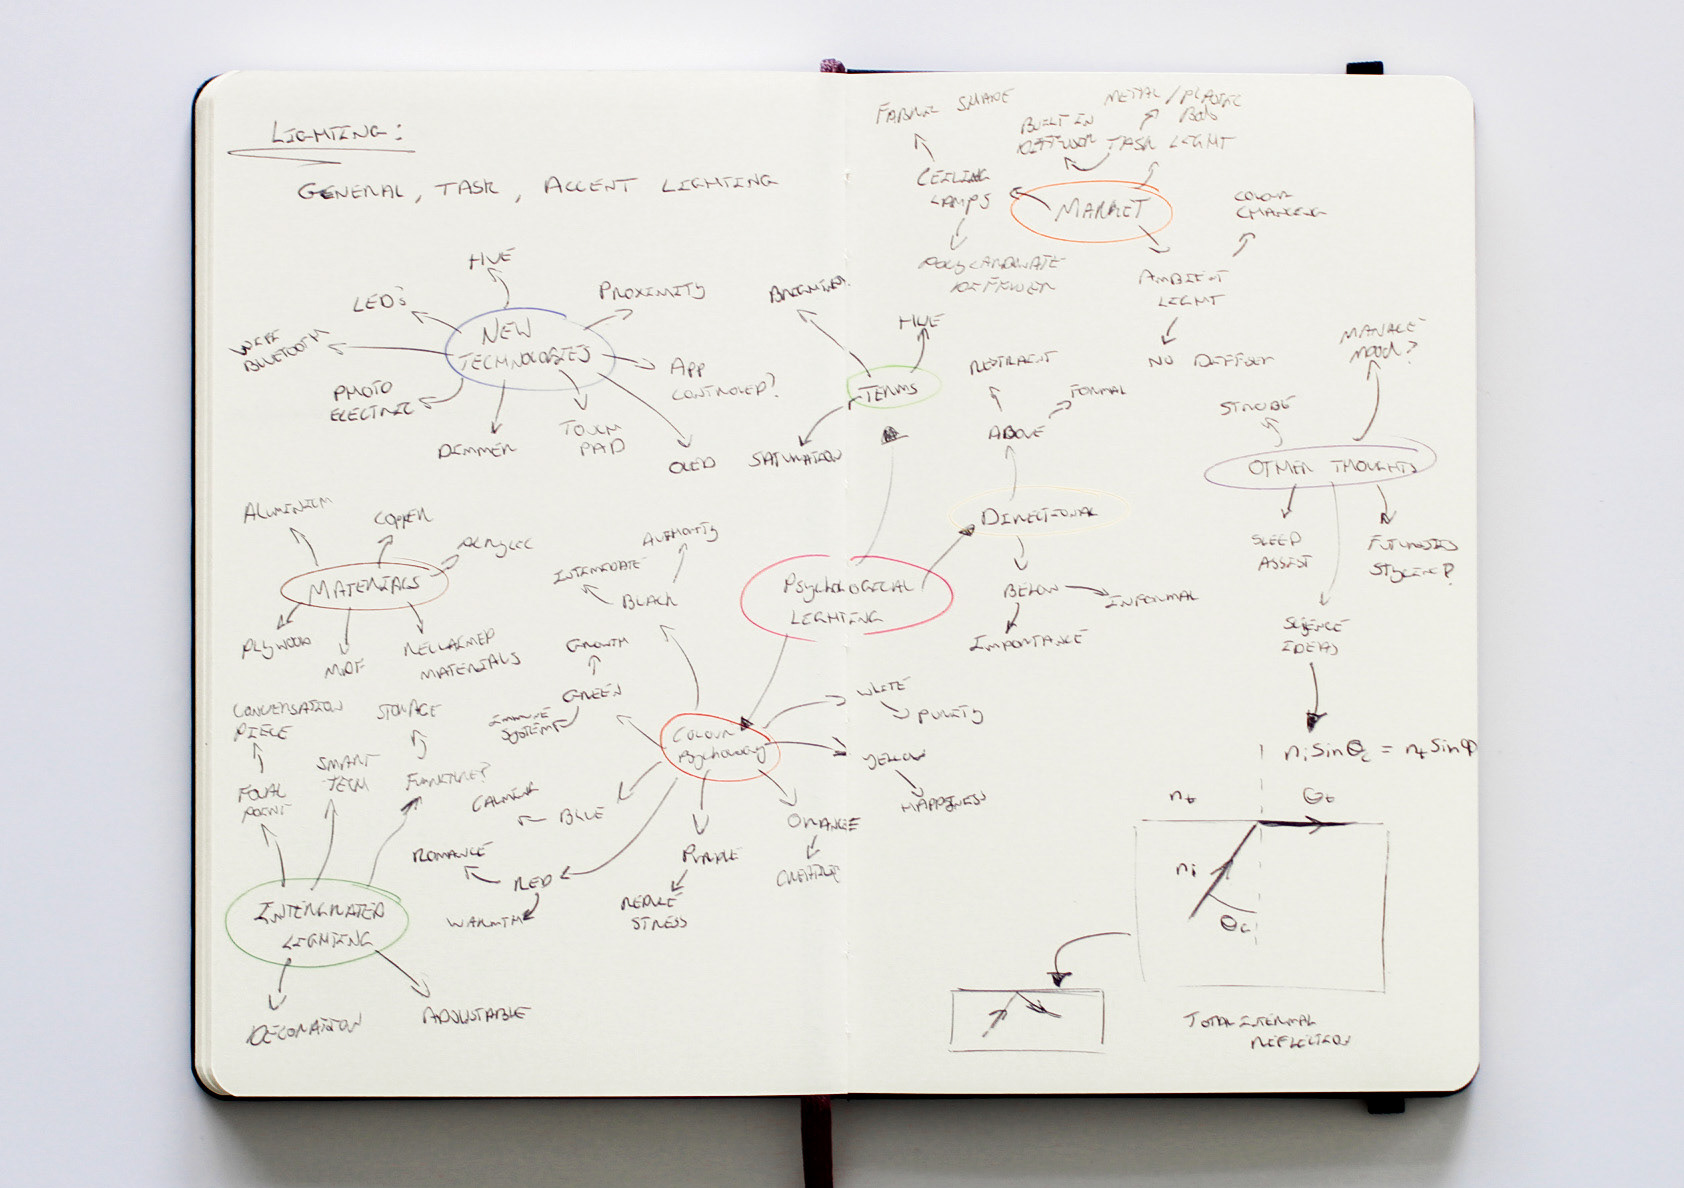 LIGHTING:
GENERAL, TASK, ACCENT LIGHTING
HUE
LED's
PROXIMITY
BLUETOOTH
NEW
TECHNOLOGIES
APP
CONTROLED?
PHOTO
ELECTRIC
DIMMER
TOUCH
PAD
OLED
BRIGHTNESS
HUE
TERMS
SATURATION
ALUMINIUM
COPPER
ACRYLIC
MATERIALS
PLYWOOD
MDF
RECLAIMED
MATERIALS
CONVERSATION
PIECE
STORAGE
SMART
TECH
FOCAL
POINT
FUNCTION?
INTERGRATED
LIGHTING
DECORATION
ADJUSTABLE
AUTHORITY
INTIMIDATE
BLACK
GROWTH
GREEN
IMMUNE
SYSTEM
PSYCHOLOGICAL
LIGHTING
COLOUR
PSYCHOLOGY
WHITE
PURITY
YELLOW
HAPPINESS
CALMING
BLUE
ORANGE
CREATIVE
ROMANCE
RED
WARMTH
PURPLE
REDUCE
STRESS
FABRIC SHADE
METAL/PLASTIC
BODY
BUILT IN
DIFFUSER
TASK LIGHT
CEILING
LAMPS
MARKET
COLOUR
CHANGING
POLYCARBONATE
DIFFUSER
AMBIENT
LIGHT
NO DIFFUSER
RESTRAINT
FORMAL
ABOVE
DIRECTIONAL
BELOW
INFORMAL
IMPORTANCE
MANAGE
MOOD?
STROBE
OTHER THOUGHTS
SLEEP
ASSIST
FUTURISTIC
STYLING?
SCIENCE
IDEAS
ni Sin Θc = nt Sin Φ
nt
Θt
ni
Θc
TOTAL INTERNAL
REFLECTION